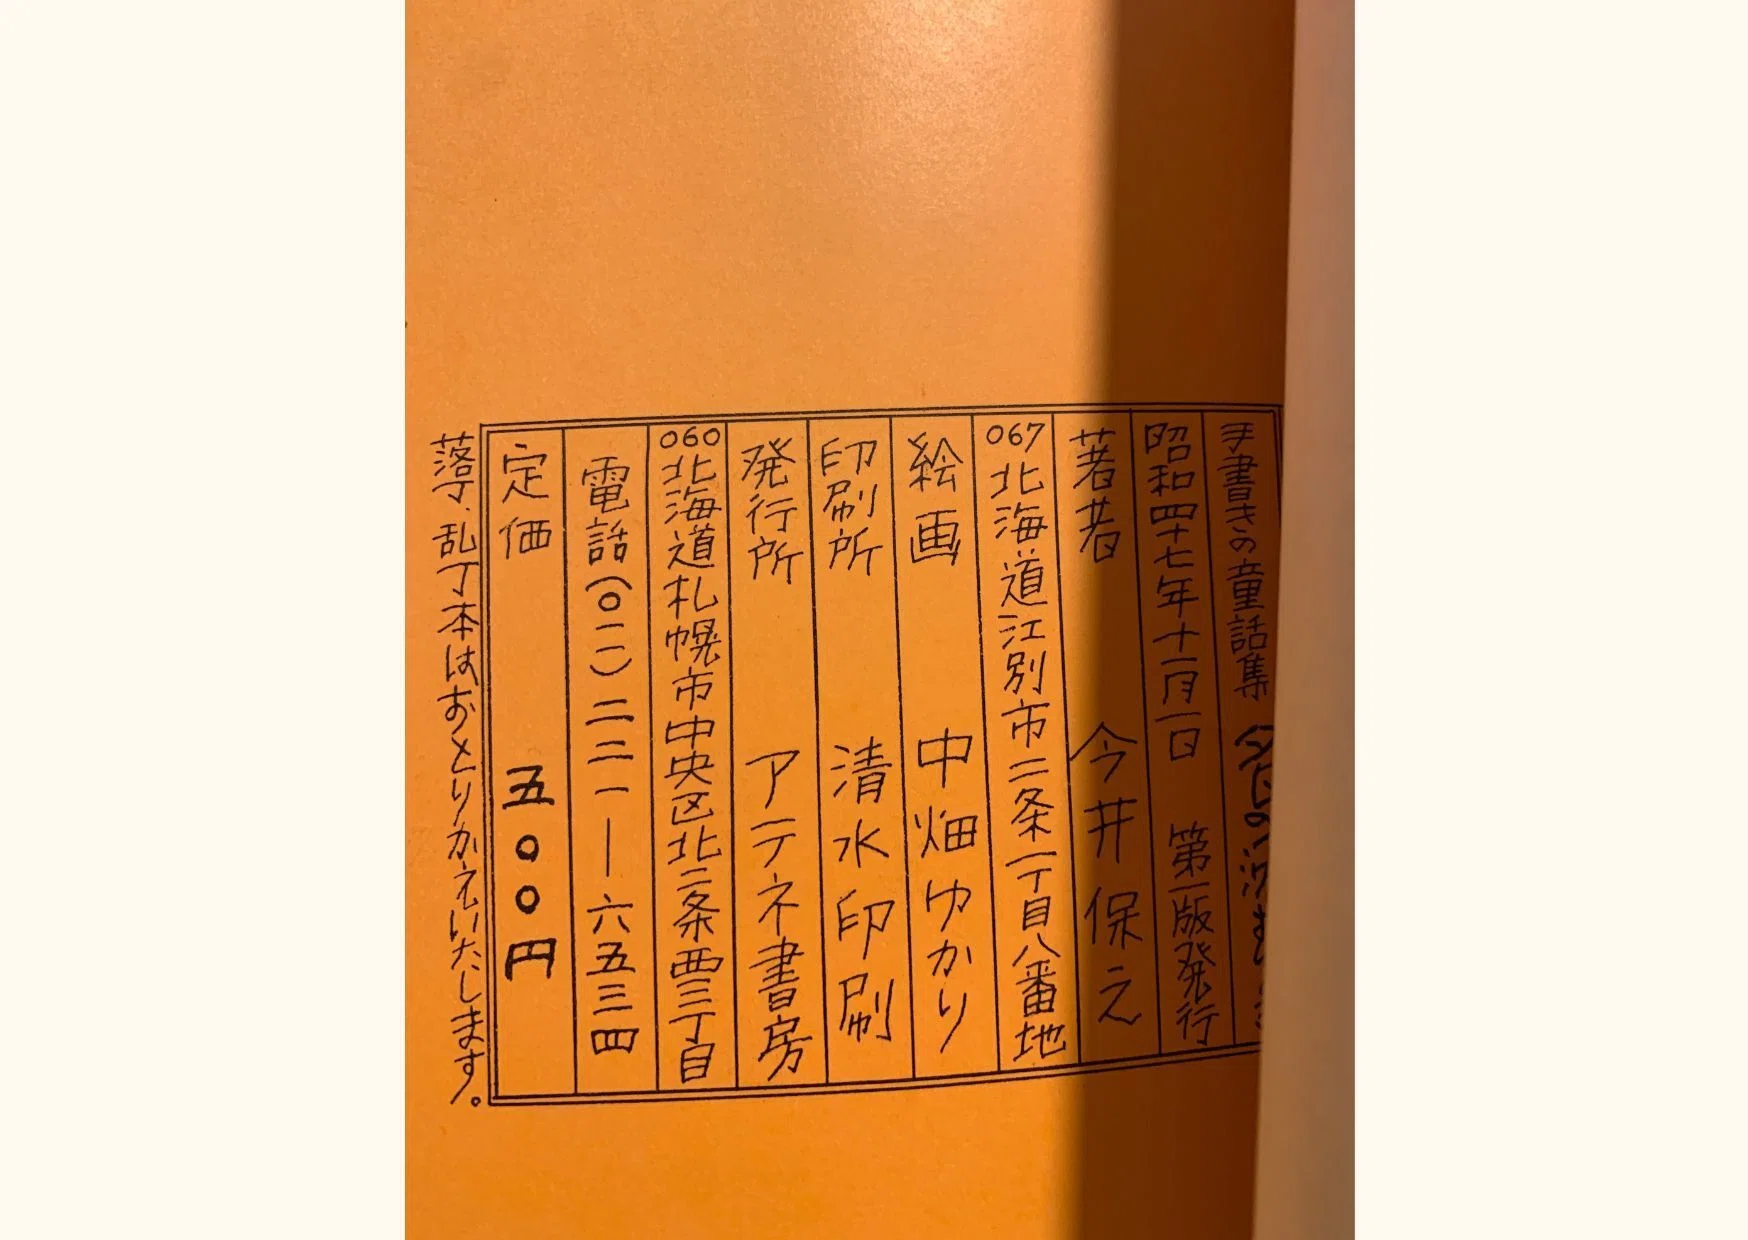 手書きの童話集 夕日の沈む
昭和四十七年十一月一日 第一版発行
著者 今井保之
067北海道江別市二条一丁目八番地
絵画 中畑ゆかり
印刷所 清水印刷
発行所 アテネ書房
060北海道札幌市中央区北二条西三丁目
電話(〇一一)二二一―六五三四
定価 五〇〇円
落丁、乱丁本はおとりかえいたします。